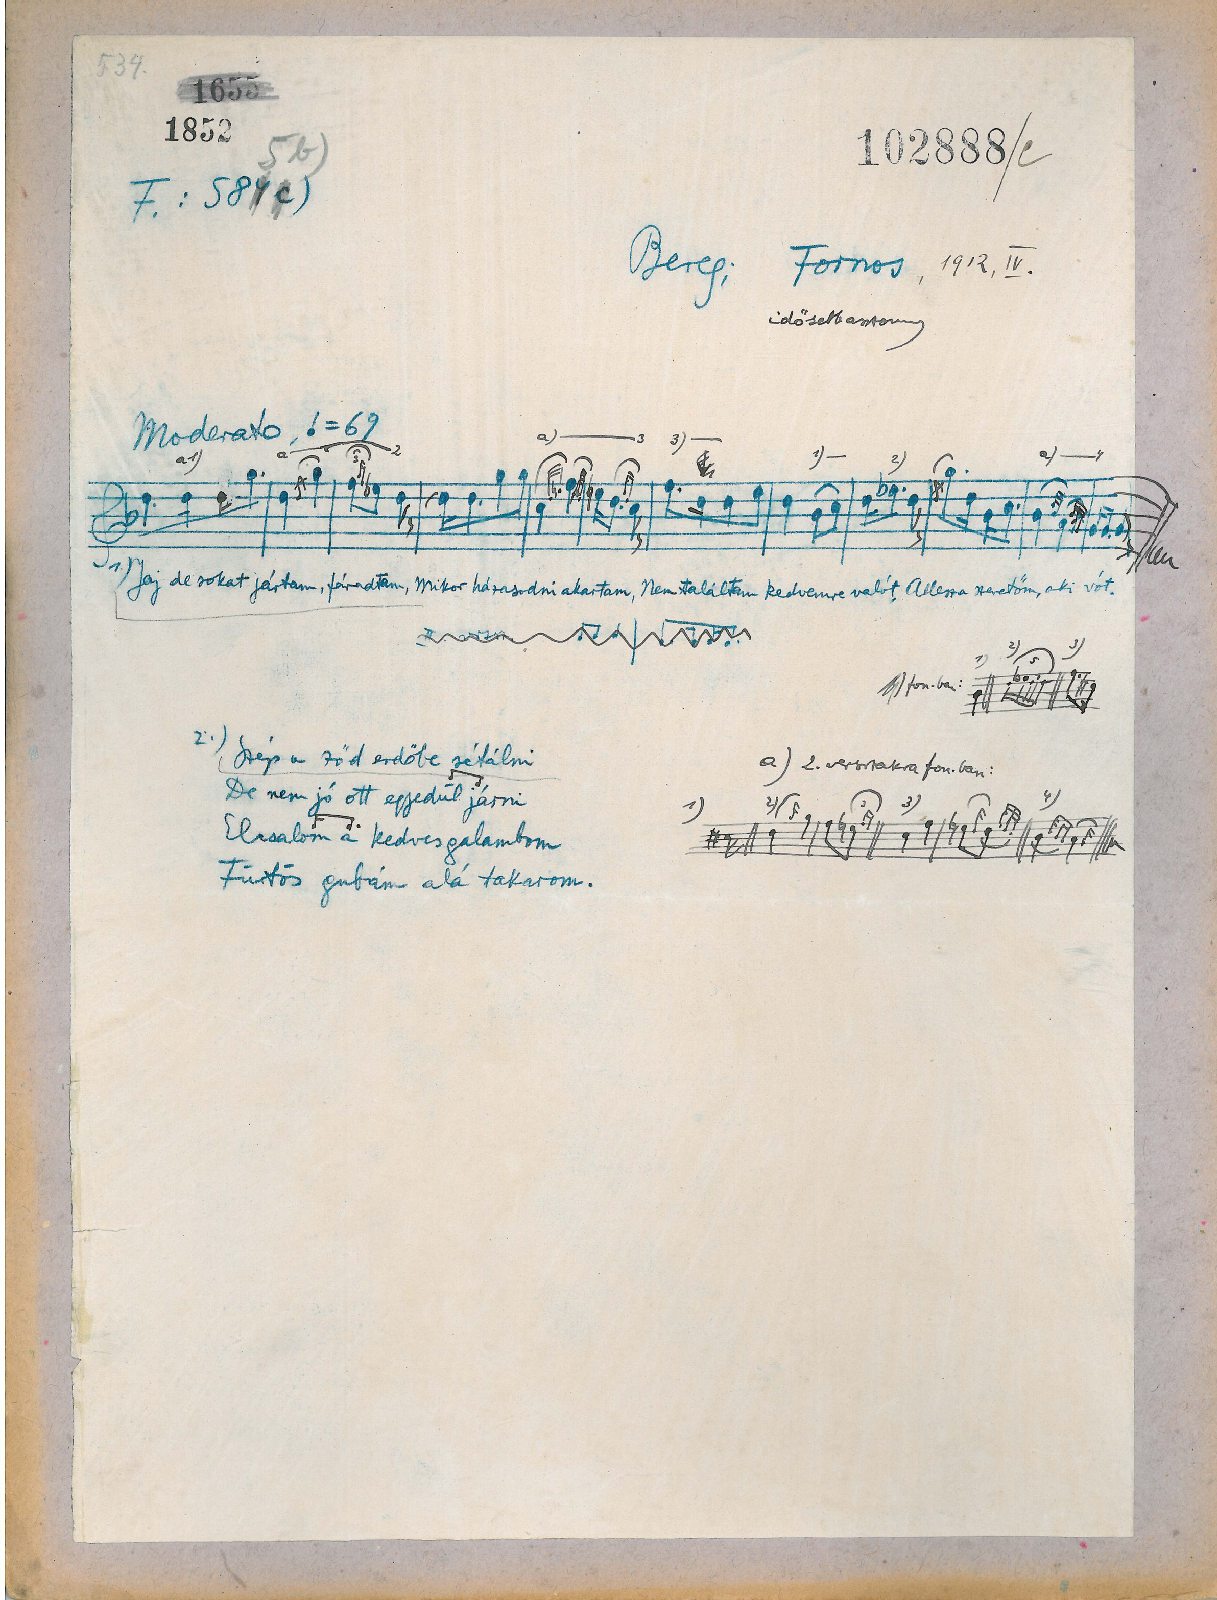 534.
1655
1852
5b)
F.: 584c)
102888/c
Bereg; Fornos, 1912, IV.
idősebb asszony
Moderato, ♩=69
a1) a 3 2 a) 3 3) 1) 2) a) 4
1.) Jaj de sokat jártam, fáradtam, Mikor házasodni akartam, Nem találtam kedvemre valót, Allessa szeretőm, aki vót.
1) fon.ban: 1) 2) 5 3)
2.) Szép a ződ erdőbe sétálni
De nem jó ott egyedűl járni
Elcsalom a kedves galambom
Fürtös gubám alá takarom.
a) 2. versszakra fon.ban:
1) 2) 3 3) 4)